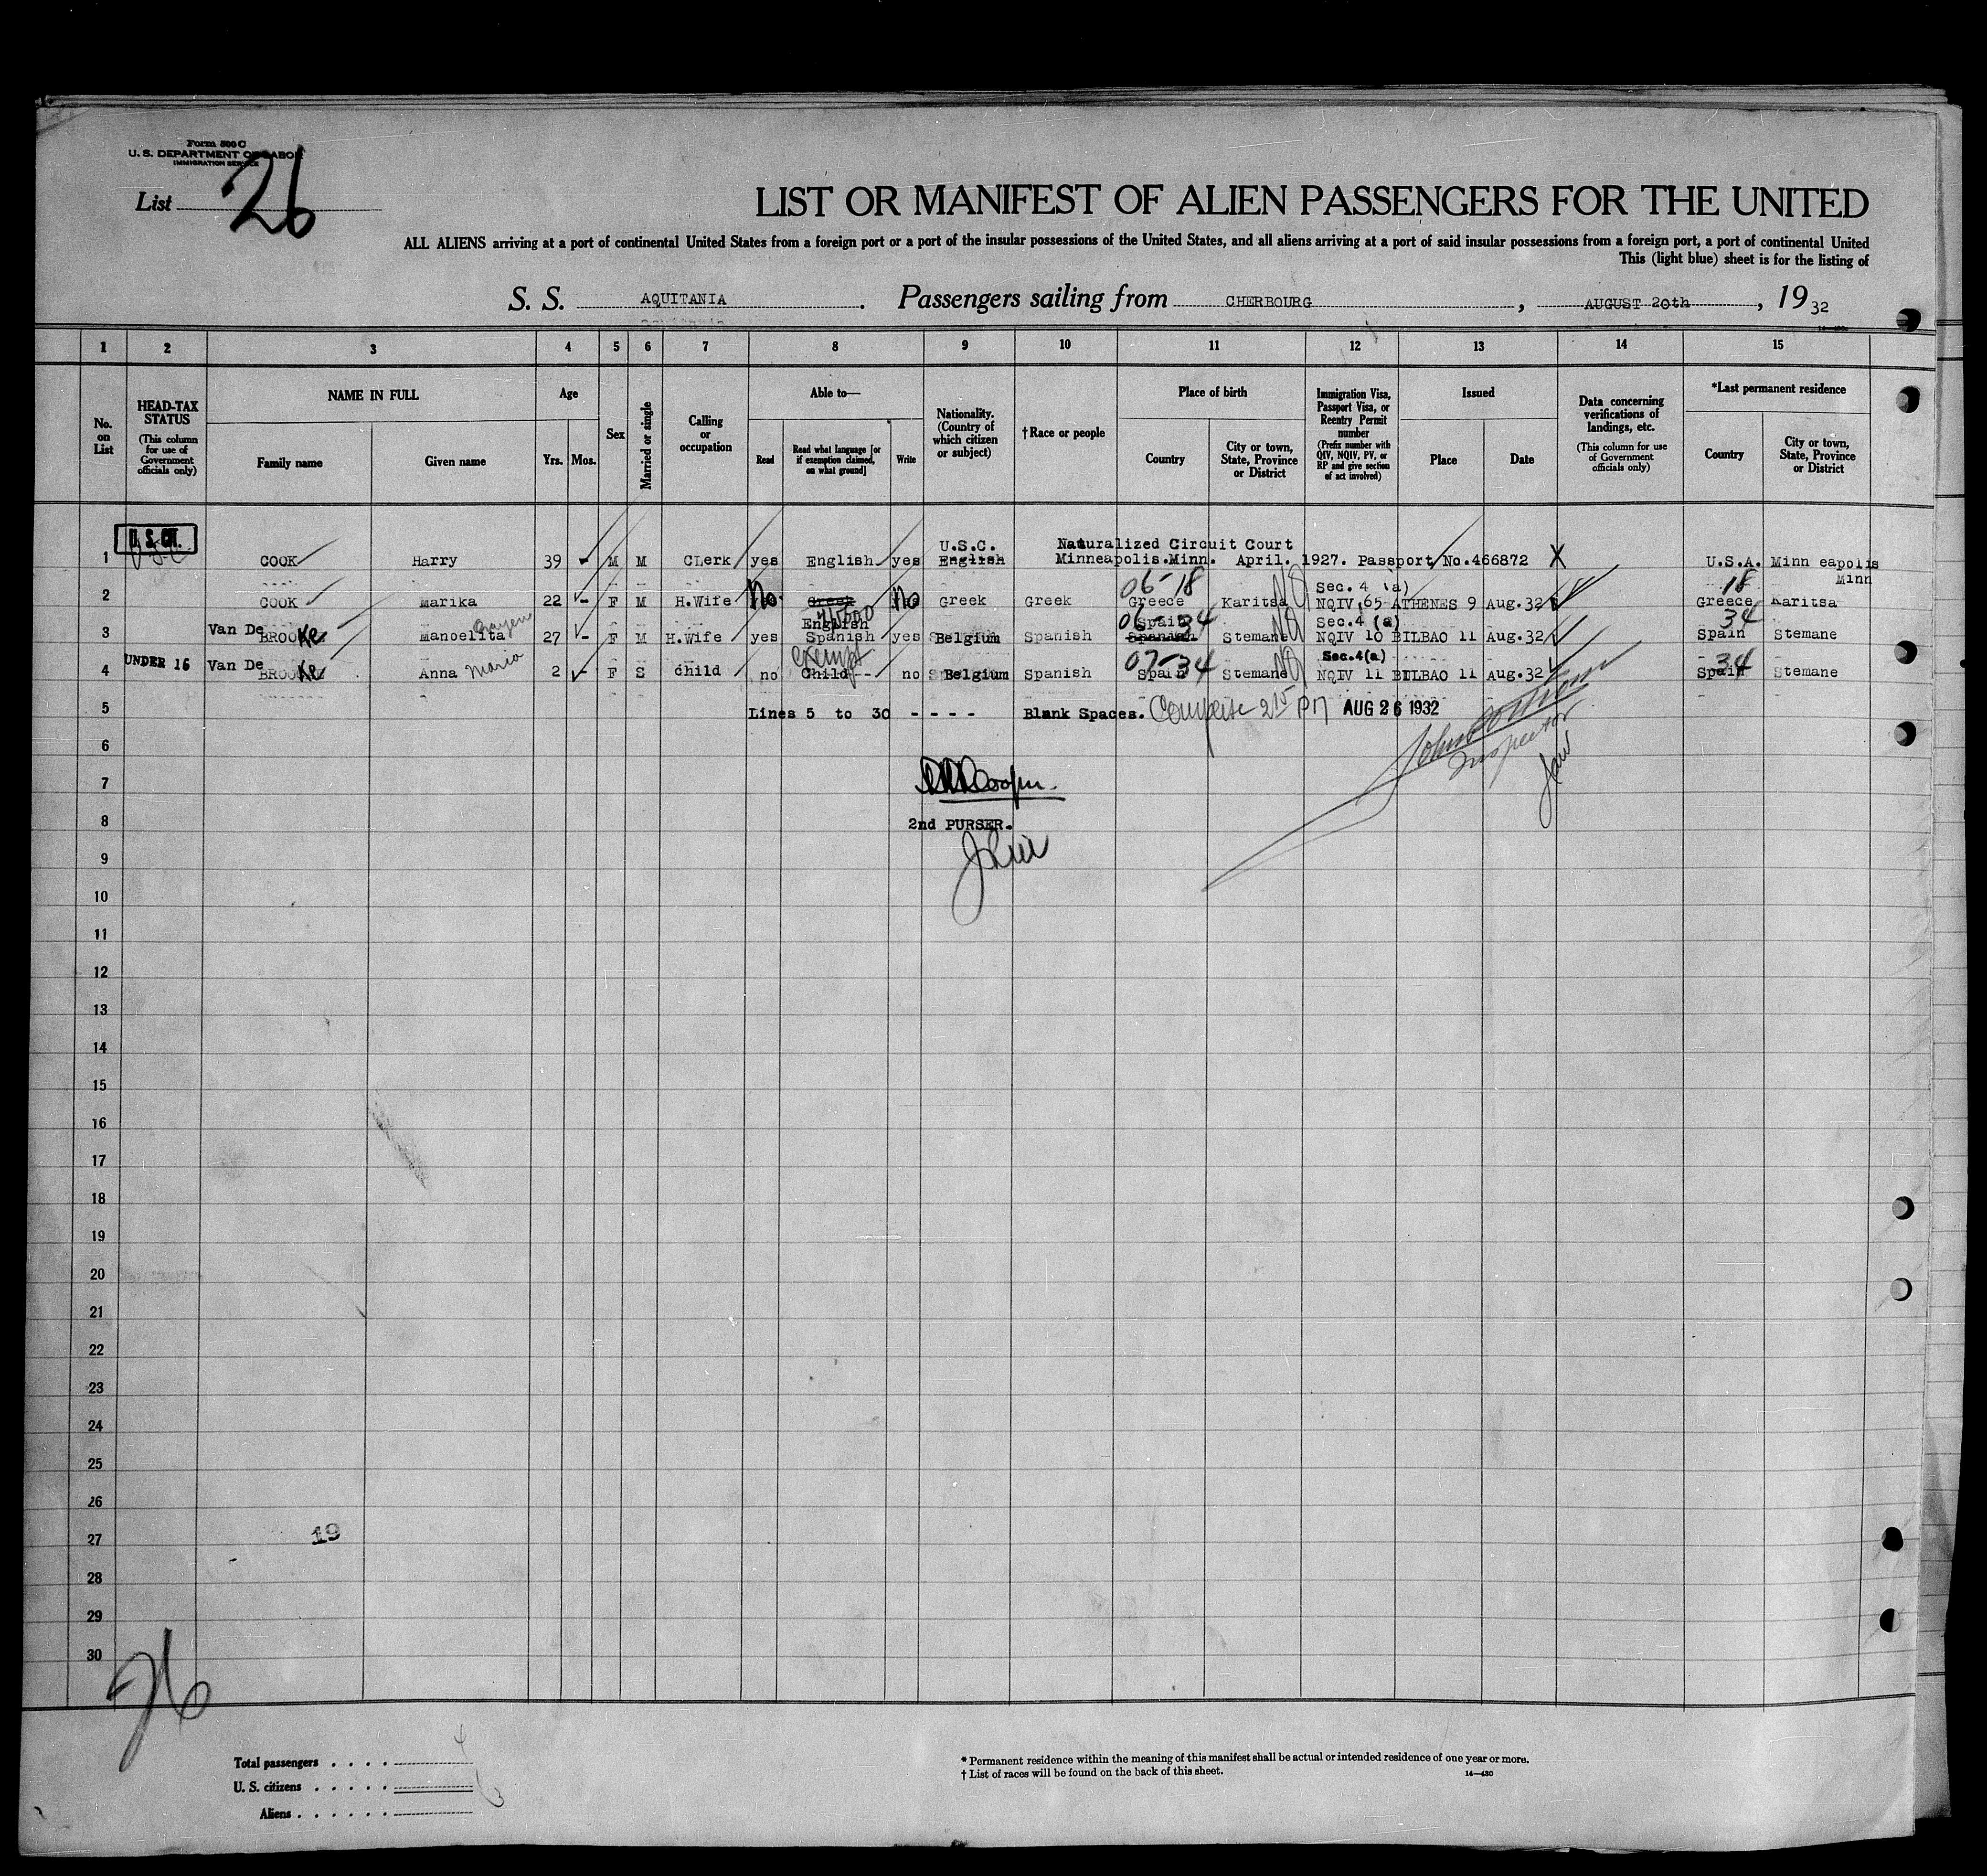 Form 500 C
U. S. DEPARTMENT OF LABOR
IMMIGRATION SERVICE
List 26
LIST OR MANIFEST OF ALIEN PASSENGERS FOR THE UNITED
ALL ALIENS arriving at a port of continental United States from a foreign port or a port of the insular possessions of the United States, and all aliens arriving at a port of said insular possessions from a foreign port, a port of continental United
This (light blue) sheet is for the listing of
S. S. AQUITANIA. Passengers sailing from CHERBOURG, AUGUST 20th, 1932
1 2 3 4 5 6 7 8 9 10 11 12 13 14 15
No. on List
HEAD-TAX STATUS (This column for use of Government officials only)
NAME IN FULL
Family name Given name
Age
Yrs. Mos.
Sex
Married or single
Calling or occupation
Able to—
Read
Read what language [or if exemption claimed, on what ground]
Write
Nationality. (Country of which citizen or subject)
†Race or people
Place of birth
Country
City or town, State, Province or District
Immigration Visa, Passport Visa, or Reentry Permit number (Prefix number with QIV, NQIV, PV, or RP and give section of act involved)
Issued
Place Date
Data concerning verifications of landings, etc. (This column for use of Government officials only)
*Last permanent residence
Country
City or town, State, Province or District
U. S. CIT.
U.S.C. Naturalized Circuit Court
1 COOK Harry 39 - M M CLerk yes English yes English Minneapolis.Minn. April. 1927. Passport No.466872 X U.S.A. Minn eapolis
Minn
06-18 Sec. 4 (a) 18
2 COOK Marika 22 - F M H.Wife No Greek No Greek Greek Greece Karitsa NQIV 65 ATHENES 9 Aug.32 Greece Karitsa
English 06-34 Spain Sec.4 (a) 34
3 Van De BROOKe Manoelita 27 - F M H.Wife yes Spanish yes Belgium Spanish Spanish Stemane NQIV 10 BILBAO 11 Aug.32 Spain Stemane
exempt 07-34 Sec.4(a) 34
4 UNDER 16 Van De BROOKe Anna Maria 2 - F S child no Child no Belgium Spanish Spain Stemane NQIV 11 BILBAO 11 Aug.32 Spain Stemane
5 Lines 5 to 30 - - - - Blank Spaces. AUG 26 1932
6 Inspector
7
8 2nd PURSER.
9
10
11
12
13
14
15
16
17
18
19
20
21
22
23
24
25
26
27 19
28
29
30
26
Total passengers . . . . 4
U. S. citizens . . . . .
Aliens . . . . . .
* Permanent residence within the meaning of this manifest shall be actual or intended residence of one year or more.
† List of races will be found on the back of this sheet. 14—430